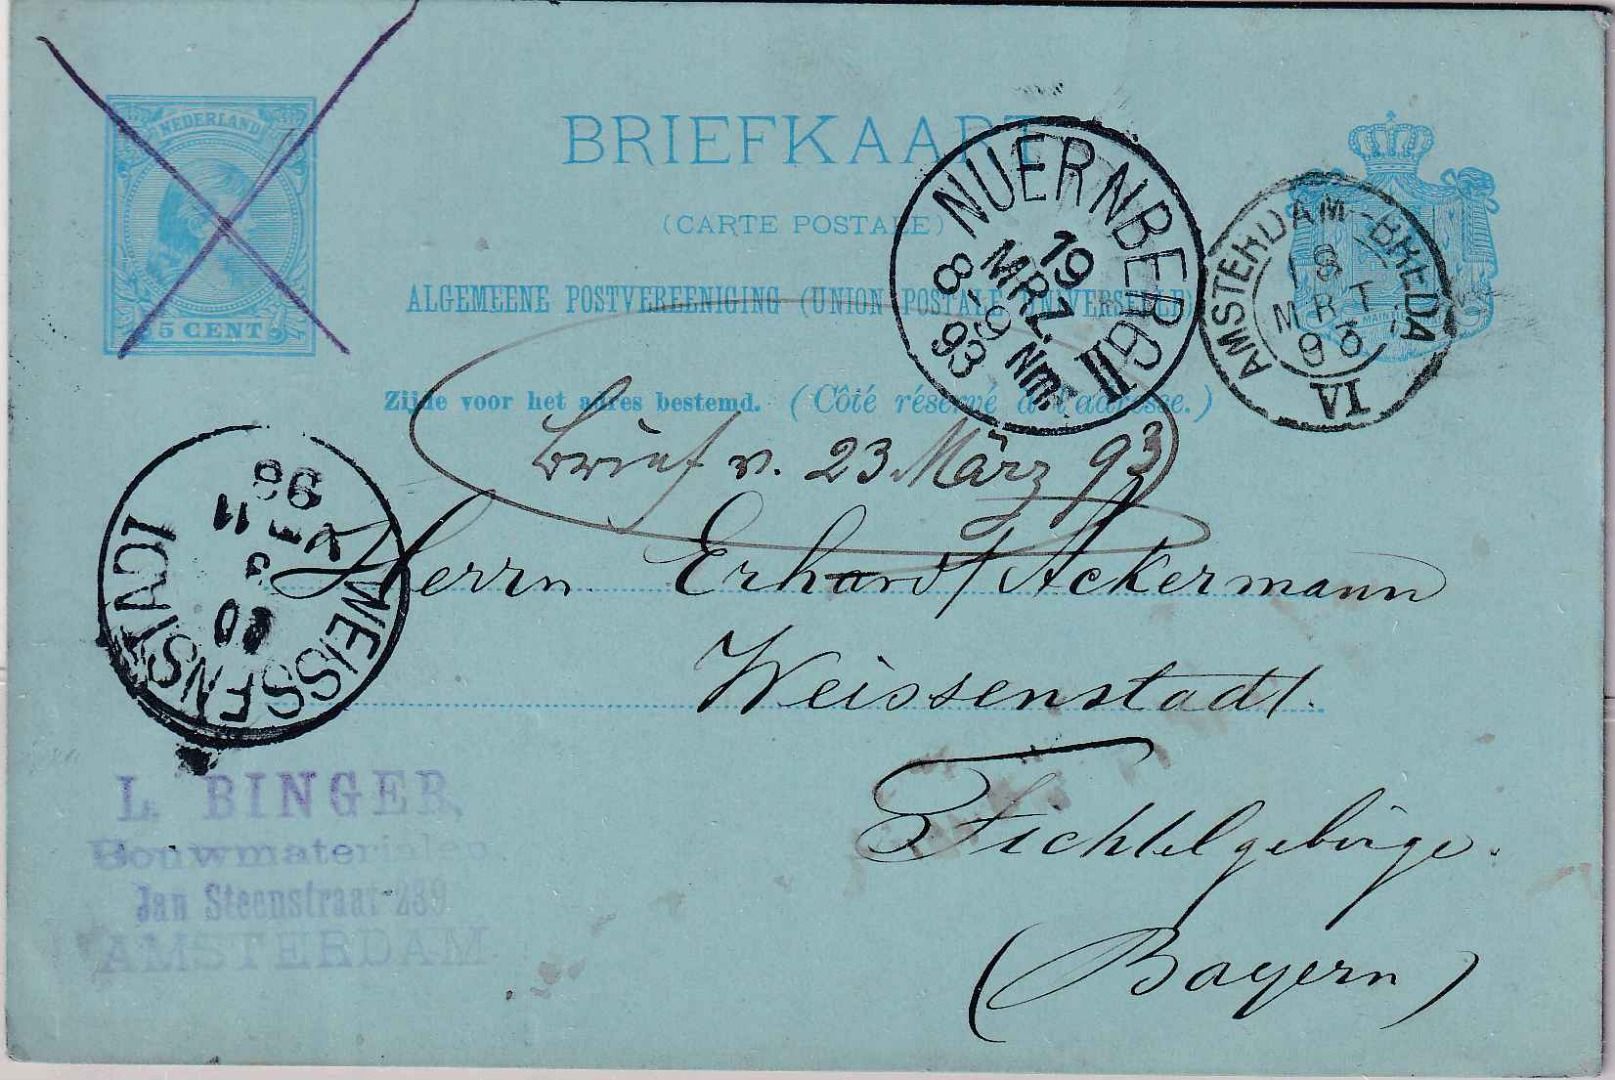 NEDERLAND
5 CENT
BRIEFKAART
(CARTE POSTALE)
ALGEMEENE POSTVEREENIGING (UNION POSTALE UNIVERSELLE)
Zijde voor het adres bestemd. (Côté réservé à l'adresse.)
NUERNBERG II
19
MRZ.
8-9 Nm.
93
AMSTERDAM-BREDA
18
MRT
93
VI
Brief v. 23 März 93
Herrn Erhard Ackermann
Weissenstadt.
Fichtelgebirge.
(Bayern)
WEISSENSTADT
L. BINGER,
Bouwmaterialen
Jan Steenstraat 239
AMSTERDAM.